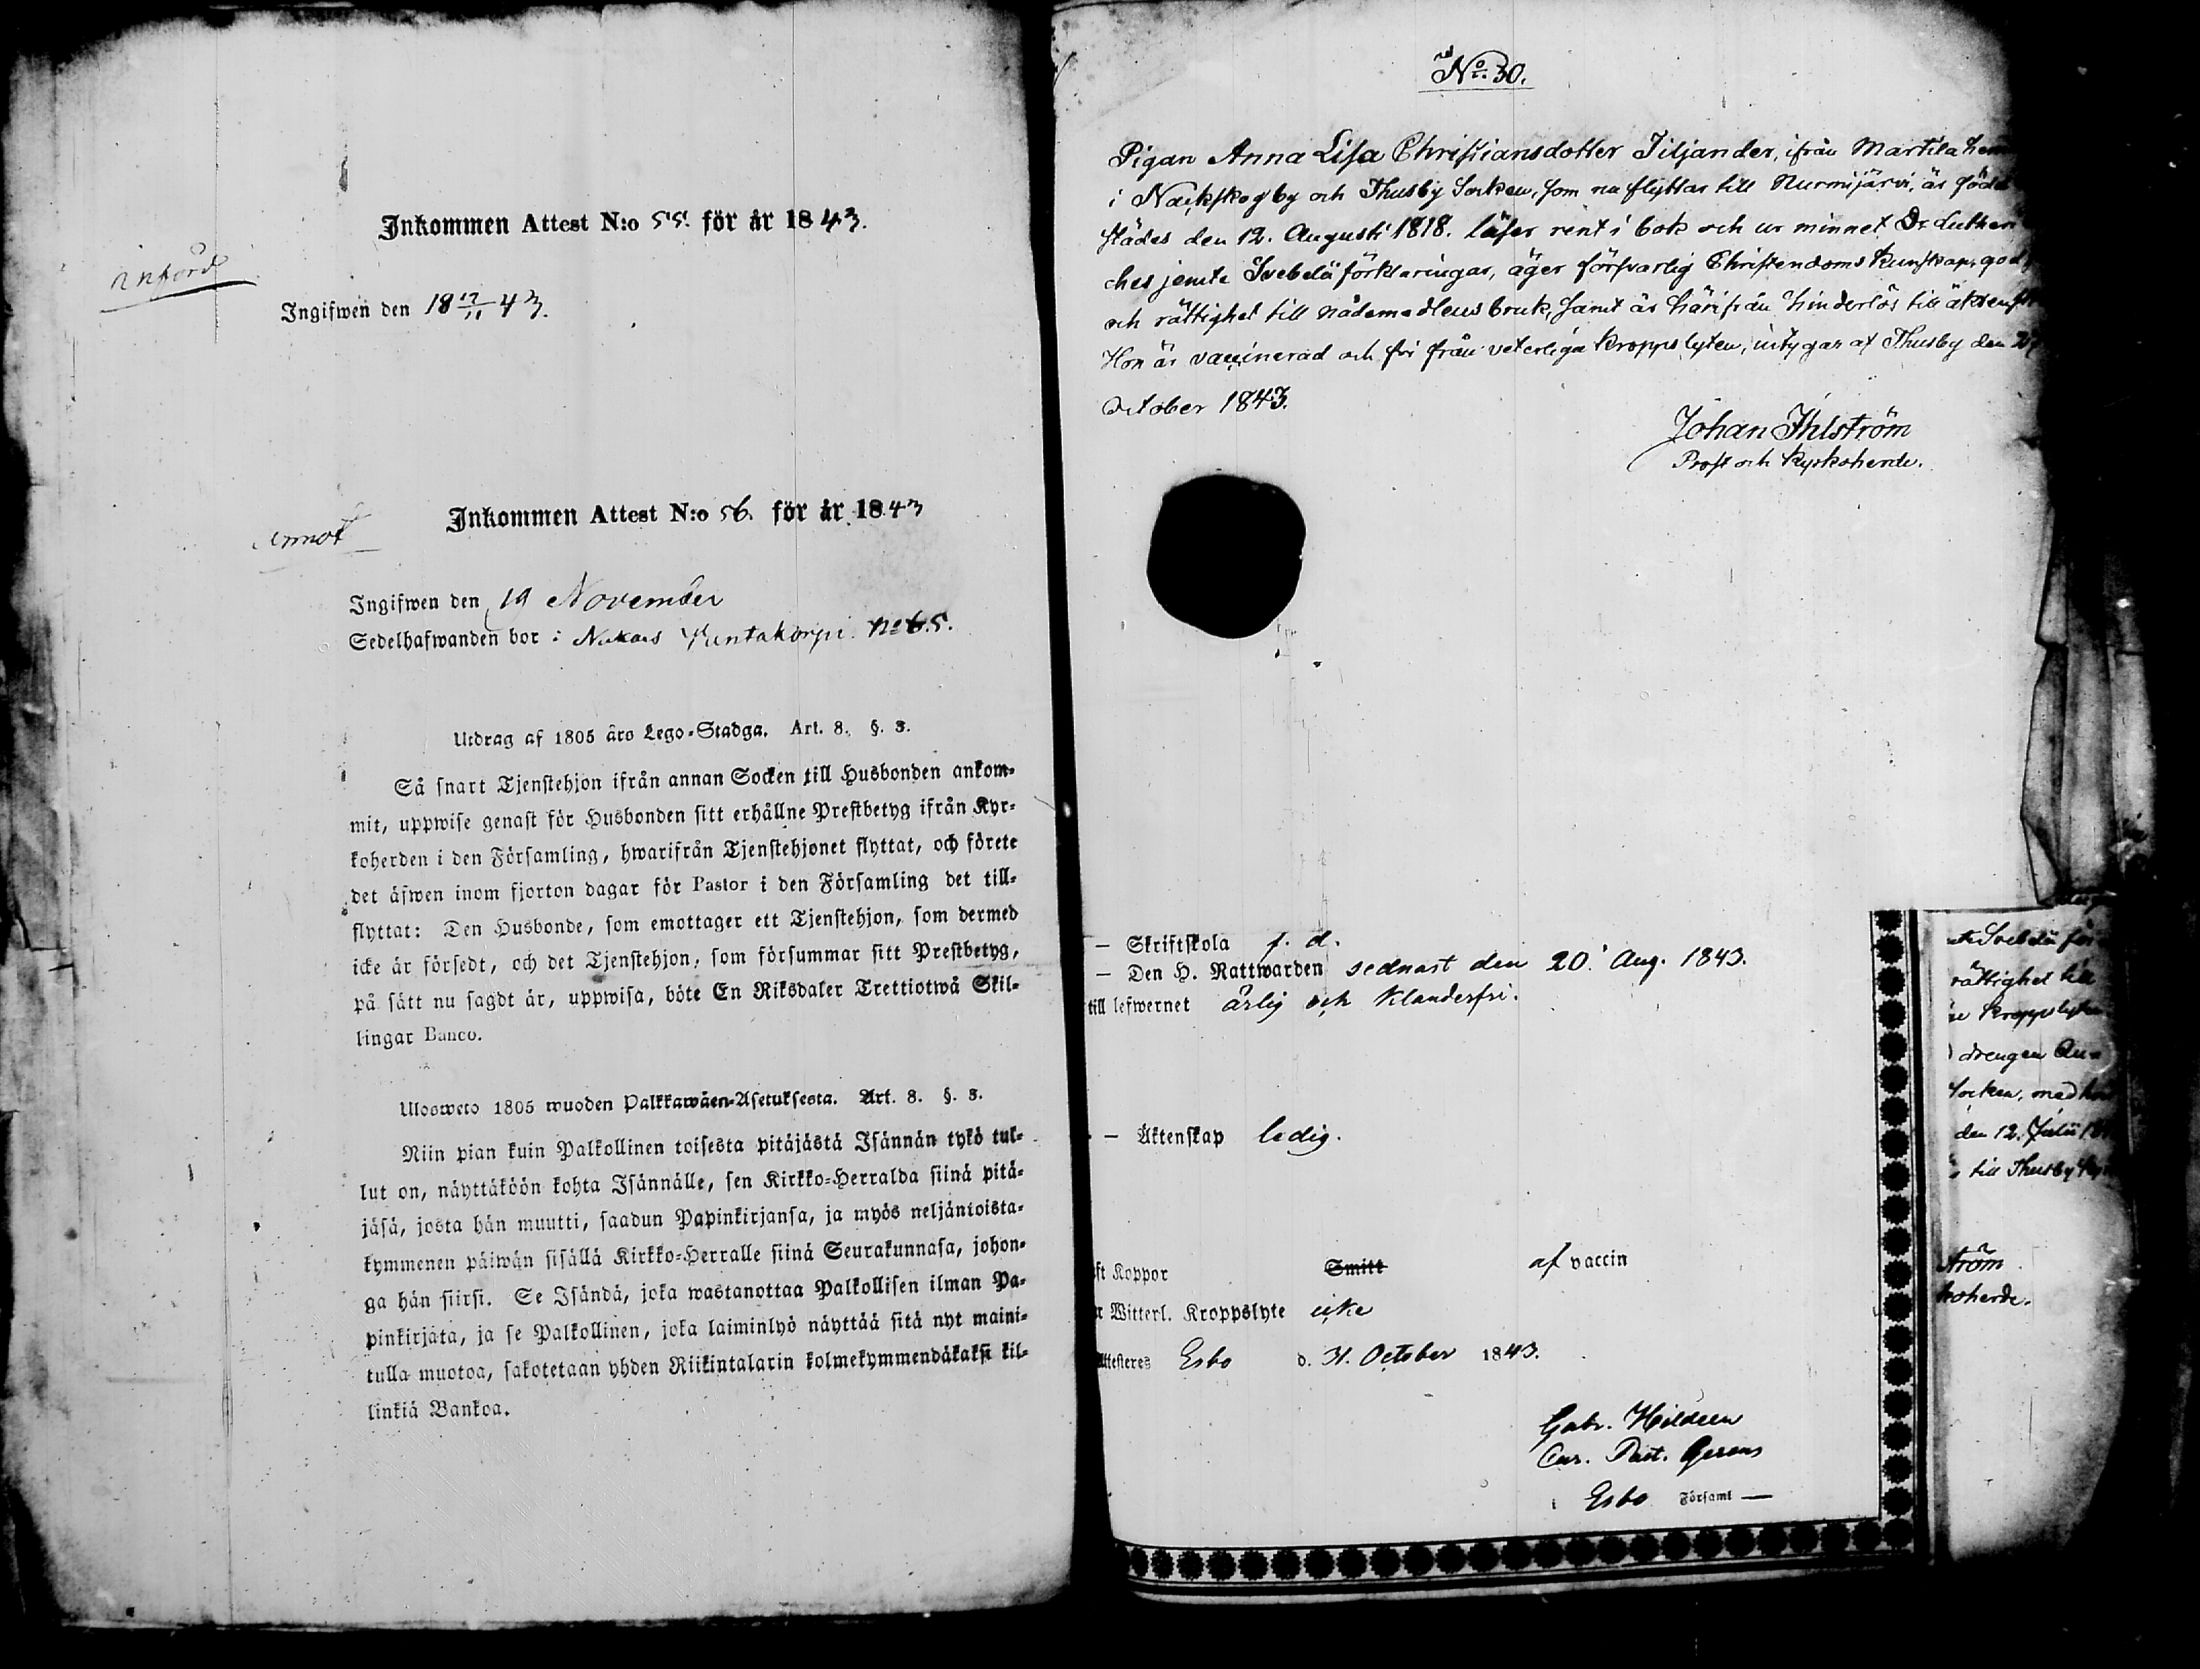 Inkommen Attest N:o 55. för år 1843.
införd
Ingifwen den 18 17/11 43.
Inkommen Attest N:o 56. för år 1843
Annot
Ingifwen den 19 November
Sedelhafwanden bor: Nukars No 6.5.
Utdrag af 1805 års Lego-Stadga. Art. 8. §. 3.
Så snart Tjenstehjon ifrån annan Socken till Husbonden ankom-
mit, uppwise genast för Husbonden sitt erhållne Prestbetyg ifrån Kyr-
koherden i den Församling, hwarifrån Tjenstehjonet flyttat, och förete
det äfwen inom fjorton dagar för Pastor i den Församling det till-
flyttat: Den Husbonde, som emottager ett Tjenstehjon, som dermed
icke är försedt, och det Tjenstehjon, som försummar sitt Prestbetyg,
på sätt nu sagdt är, uppwisa, böte En Riksdaler Trettiotwå Skil-
lingar Banco.
Ulosweto 1805 wuoden Palkkawäen-Asetuksesta. Art. 8. §. 3.
Niin pian kuin Palkollinen toisesta pitäjästä Isännän tykö tul-
lut on, näyttäköön kohta Isännälle, sen Kirkko-Herralda siinä pitä-
jäsä, josta hän muutti, saadun Papinkirjansa, ja myös neljäntoista-
kymmenen päiwän sisällä Kirkko-Herralle siinä Seurakunnasa, johon-
ga hän siirsi. Se Isändä, joka wastanottaa Palkollisen ilman Pa-
pinkirjata, ja se Palkollinen, joka laiminlyö näyttää sitä nyt maini-
tulla muotoa, sakotetaan yhden Riikintalarin kolmekymmendäkaksi kil-
linkiä Bankoa.
No 30.
Pigan Anna Lisa Christiansdotter Tiljander, ifrån Martila hem
i Näckskogby och Thusby Socken, som nu flyttar till Nurmijärvi, är född
städes den 12. Augusti 1818. läser rent i bok och ur minnet Dr Lutheri
ches jemte Svebelii förklaringar, äger försvarlig Christendoms kunskap, god
och rättighet till nådemedlens bruk, samt är härifrån hinderlös till äktensk
Hon är vaccinerad och fri från veterliga kroppslyten, intygar af Thusby den
October 1843.
Johan Ihlström
Prost och Kyrkoherde.
— Skriftskola f. d.
— Den H. Nattwarden sednast den 20. Aug. 1843.
till lefwernet ärlig och klanderfri.
— Äktenskap ledig.
ft Koppor Smitt af vaccin
r Witterl. Kroppslyte icke
Attesteres Esbo d. 31. October 1843.
Gabr. Hildeen
Cur. Past. Gerens
i Esbo Församl —
te Svebelii för
rättighet till
kroppslyten
drengen
Socken, med
den 12. Julii
till Thusby
ström
koherde.